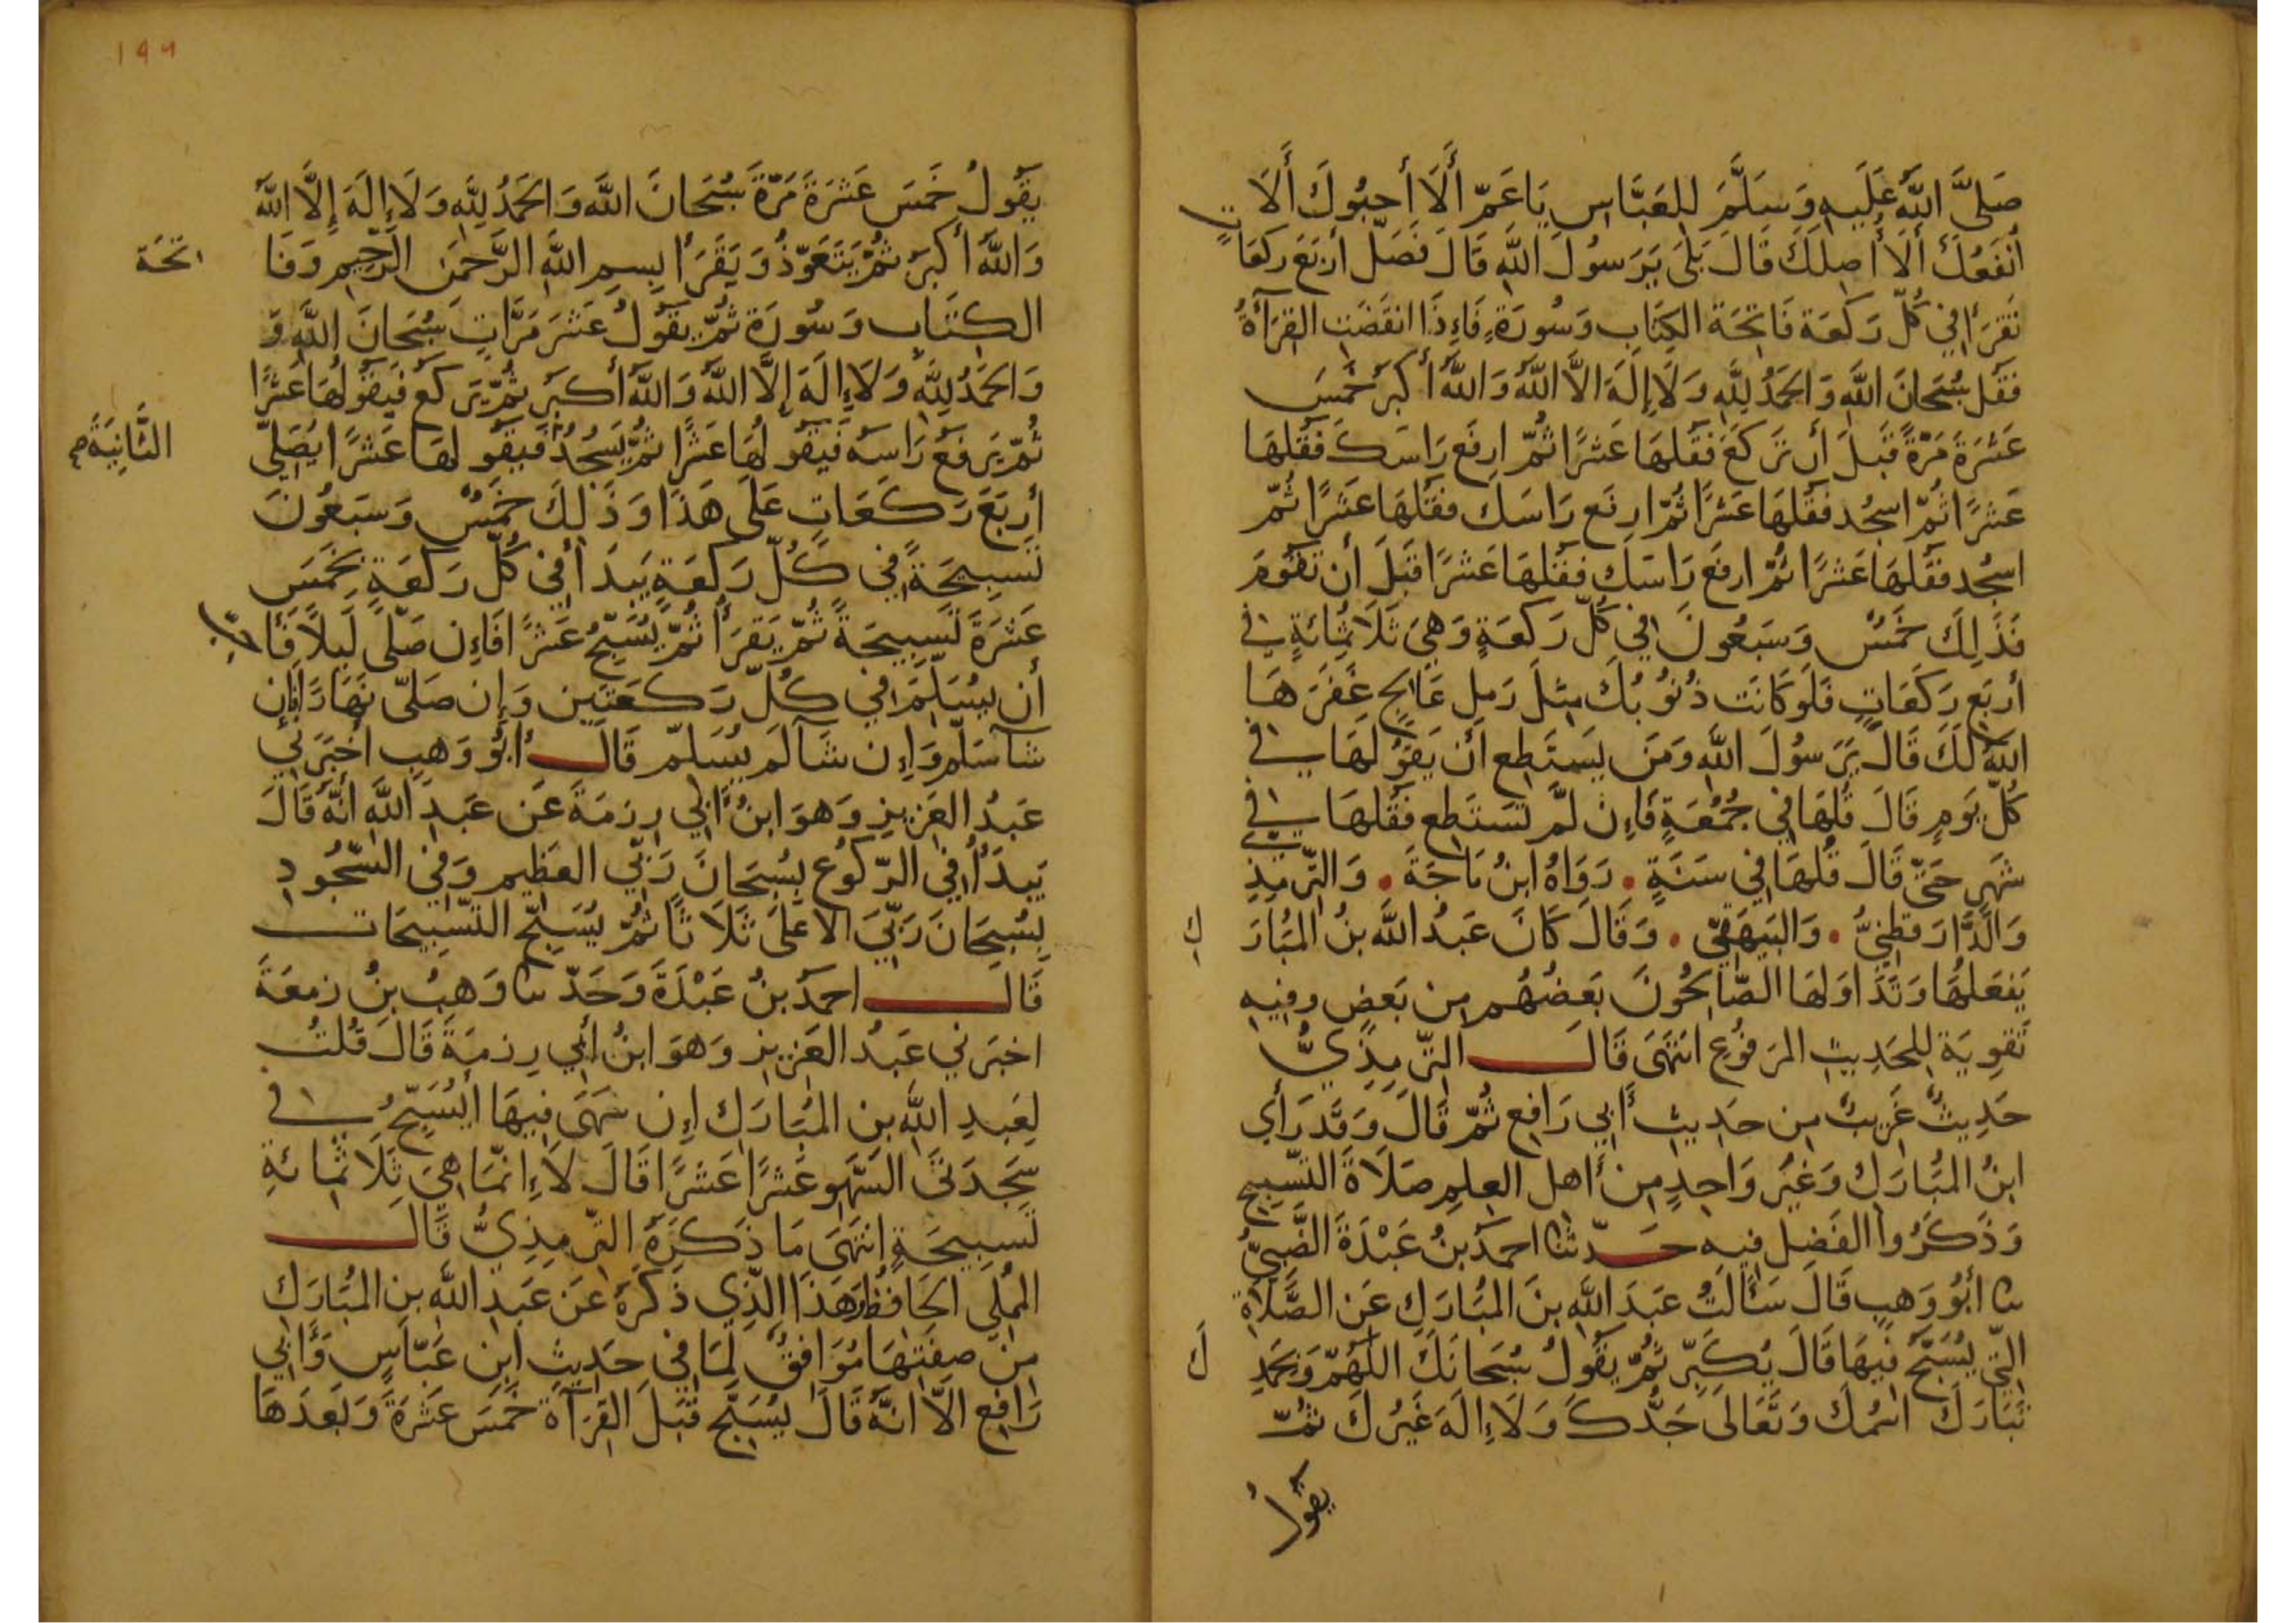 صَلَّى اللهُ عَلَيهِ وَسَلَّمَ لِلعَبَّاسِ يَا عَمِّ أَلَا أَحبُوكَ أَلَا
أَنفَعُكَ أَلَا أَصِلُكَ قَالَ بَلَى يَرَسُولَ اللهِ قَالَ فَصَلِّ أَربَعَ رَكعَاتٍ
تَقرَأُ فِي كُلِّ رَكعَة فَاتِحَة الكِتَابِ وَسُورَةٍ فَإِذَا انقَضَتِ القِرَآءَةُ
فَقُل سُبحَانَ اللهِ وَالحَمدُ لِلهِ وَلَا إِلَهَ الَّا اللهُ وَاللهُ أَكبَرُ خَمسَ
عَشرَةَ مَرَّةً قَبلَ أَن تَركَعَ فَقُلهَا عَشرًا ثُمَّ ارفَع رَاسَكَ فَقُلهَا
عَشرًا ثُمَّ اسجُد فَقُلهَا عَشرًا ثُمَّ ارفَع رَاسَكَ فَقُلهَا عَشرًا ثُمَّ
اسجُد فَقُلهَا عَشرًا ثُمَّ ارفَع رَاسَكَ فَقُلهَا عَشرًا قَبلَ أَن تَقُومَ
فَذَلِكَ خَمسٌ وَسَبعُونَ فِي كُلِّ رَكعَةٍ وَهِيَ ثَلَاثُمِائَةٍ فِي
أَربَعِ رَكَعَاتٍ فَلَو كَانَت ذُنُوبُكَ مِثلَ رَملِ عَالِجٍ غَفَرَهَا
اللهُ لَكَ قَالَ يَرَسُولَ اللهِ وَمَن يَستَطِع أَن يَقُولَهَا فِي
كُلِّ يَومٍ قَالَ قُلهَا فِي جُمُعَةٍ فَإِن لَّم تَستَطِع فَقُلهَا فِي
شَهرٍ حَتَّى قَالَ قُلهَا فِي سَنَةٍ . رَوَاهُ ابنُ مَاجَةَ . وَالتِّرمِذِي
وَالدَّارَقطِنيُّ . وَالبَيهَقِيّ . وَقَالَ كَانَ عَبدُ اللهِ بنُ المُبَارَكِ
يَفعَلُهَا وَتَدَاوَلَهَا الصَّالِحُونَ بَعضُهُم مِن بَعضٍ وفِيهِ
تَقوِيَة لِلحَدِيثِ المَرفُوعِ انتَهَى قَالَ التِّرمِذِيُّ
حَدِيثٌ غَرِيبٌ مِن حَدِيثِ أَبِي رَافِعٍ ثُمَّ قَالَ وَقَد رَأَى
ابنُ المُبَارَكِ وَغَيرُ وَاحِدٍ مِن أَهلِ العِلمِ صَلَاةَ التَّسبِيحِ
وَذَكَرُوا الفَضلَ فِيهِ حَدّثنَا احمَدُ بنُ عَبْدَةَ الضَّبِيُّ
نا أَبُو وَهبٍ قَالَ سَأَلتُ عَبدَ اللهِ بنَ المُبَارَكِ عَنِ الصَّلَاةِ
الَّتِي يُسَبَّحُ فِيهَا قَالَ يُكَبِّرُ ثُمَّ يَقُولُ سُبحَانَكَ اللَّهُمَّ وَبِحَمدِكَ
تَبَارَكَ اسمُكَ وَتَعَالَى جَدُّكَ وَلَا إِلَهَ غَيرُكَ ثُمَّ
يَقُولُ
١٩٩
يَقُولُ خَمسَ عَشرَةَ مَرَّةً سُبحَانَ اللهِ وَالحَمدُ لِلهِ وَلَا إِلَهَ إِلَّا اللهُ
وَاللهُ أَكبَرُ ثُمَّ يَتَعَوَّذُ وَيَقرَأُ بِسمِ اللهِ الرَّحمَنِ الرَّحِيمِ وَفَاتِحَة
الكِتَابِ وَسُورَة ثُمَّ يَقُولُ عَشرَ مَرَّاتٍ سُبحَانَ اللهِ وَ
وَالحَمدُ لِلهِ وَلَا إِلَهَ إِلَّا اللهُ وَاللهُ أَكبَر ثُمَّ يَركَع فَيَقُولُهَا عَشرًا
ثُمَّ يَرفَع رَاسَه فَيَقُولُهَا عَشرًا ثُمَّ يَسجُد فَيَقُولُهَا عَشرًا يُصَلِّي
الثَّانِيَةَ صح
أَربَعَ رَكَعَاتٍ عَلَى هَذَا وَذَلِكَ خَمسٌ وَسَبعُونَ
تَسبِيحَةً فِي كُلِّ رَكعَةٍ يَبدَأُ فِي كُلِّ رَكعَةٍ بِخَمسَ
عَشرَةَ تَسبِيحَةً ثُمَّ يَقرَأُ ثُمَّ يُسَبِّحُ عَشرًا فَإِن صَلَّى لَيلًا فَأَحَبُّ
أَن يُسَلِّمَ فِي كُلِّ رَكعَتَينِ وَإِن صَلَّى نَهَارًا فَإِن
شآ سَلَّم وَإِن شَآ لَم يُسَلِّم قَالَ أَبُو وَهبٍ أَخبَرَنِي
عَبدُ العَزِيزِ وَهوَ ابنُ أَبِي رِزمَةَ عَن عَبدِ اللهِ أَنَّهُ قَالَ
يَبدَأُ فِي الرُّكُوعِ بِسُبحَانَ رَبِّيَ العَظِيمِ وَفِي السُّجُودِ
بِسُبحَانَ رَبِّيَ الاعلَى ثَلَاثًا ثُمَّ يُسَبِّح التَّسبِيحَات
قَالَ احمَدُ بنُ عَبْدَةَ وَحَدّثنا وَهبُ بنُ زمعَةَ
اخبَرَنِي عَبدُ العَزِيزِ وَهوَ ابنُ أَبِي رِزمَةَ قَالَ قُلتُ
لِعَبدِ اللهِ بنِ المُبَارَكِ إِن سَهَى فِيهَا أَيُسَبِّحُ فِي
سَجدَتَي السَّهوِ عَشرًا عَشرًا قَالَ لَا إِنَّمَا هِيَ ثَلَاثُمِائَةِ
تَسبِيحَةٍ انتَهَى مَا ذَكَرَهُ التِّرمِذِيُّ قَالَ
المُملِي الحَافِظ وَهَذَا الَّذِي ذَكَرَهُ عَن عَبدِ اللهِ بنِ المُبَارَكِ
مِن صِفَتِهَا مُوَافِقٌ لِمَا فِي حَدِيثِ ابنِ عَبَّاسٍ وَأَبِي
رَافِعٍ الَّا انَّهُ قَالَ يُسَبِّح قَبلَ القِرَآة خَمسَ عَشرَةَ وَبَعدَهَا